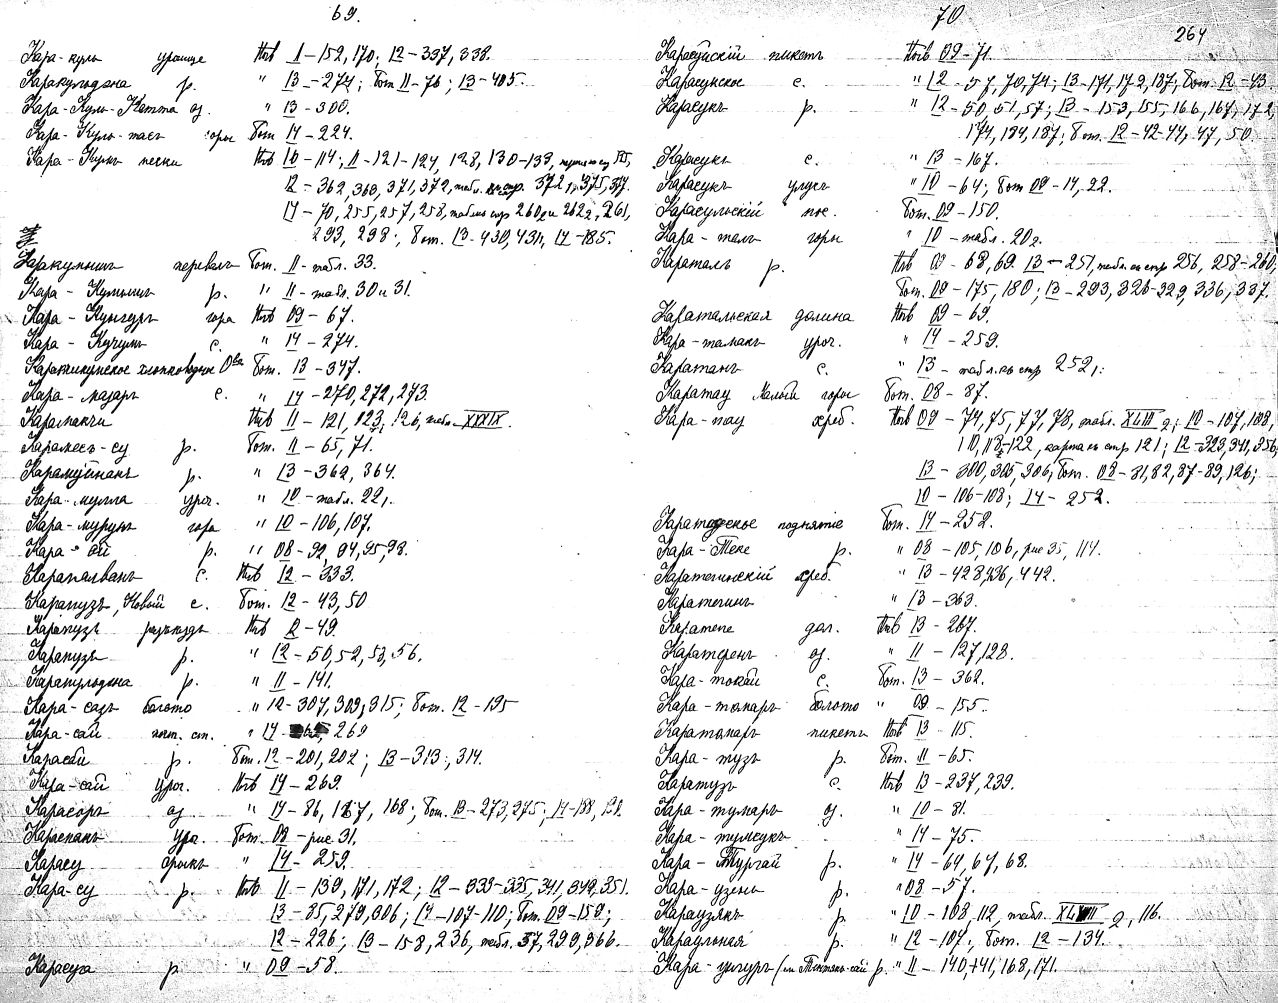 69.
Кара-куль урочище Нив II – 152, 170; 12 – 337, 338.
Каракульдана р. " 13 – 274; Бот. II – 76; 13 – 405.
Кара-Куль-Кетта оз. " 13 – 300.
Кара-Куль-тасъ горы Бот 14 – 224.
Кара-Кумъ пески Нив 10 – 114; II – 121 – 124, 128, 130 – 133,
12 – 362, 371, 372, табл. къ стр. 372, 375,
14 – 70, 255, 257, 258, табл. къ стр 260 и 262, 261,
293, 298; Бот. 13 – 430, 431, 14 – 185.
Каркумышъ перевалъ Бот. II – табл. 33.
Кара-Кумышъ р. " II – табл. 30 и 31.
Кара-Кунгуръ гора Нив 09 – 67.
Кара-Кучумъ с. " 14 – 274.
Бот. 13 – 347.
Кара-мазаръ с. " 14 – 270, 272, 273.
Каратакчи Нив II – 121, 123, 126, табл. XXXIX.
Карамесъ-су р. Бот. II – 65, 71.
р. " 13 – 362, 364.
Кара-мулла уроч. " 10 – табл. 22,.
Кара-мурунъ гора " 10 – 106, 107.
Кара-ой р. " 08 – 92, 94, 95, 98.
Карапалванъ с. Нив 12 – 333.
Карапузъ, Новый с. Бот. 12 – 43, 50
Карапузъ разъездъ Нив 12 – 49.
Карапузъ р. " 12 – 50, 52, 53, 56.
Каракульдана р. " II – 141.
Кара-сазъ болото " 12 – 307, 309, 315; Бот. 12 – 195
Кара-сай почт. ст. " 14 – 269
Карасай р. Бот. 12 – 201, 202; 13 – 313, 314.
Кара-сай уроч. Нив 14 – 269.
Карасоръ оз. " 14 – 86, 167, 168; Бот. 13 – 273, 275; 14 – 188,
Караспанъ ура. Бот. 08 – рис 31.
Карасу арыкъ " 14 – 259.
Кара-су р. Нив II – 139, 171, 172; 12 – 333 – 335, 341, 349, 351.
13 – 35, 279, 306; 14 – 107 – 110; Бот. 09 – 159;
12 – 226; 13 – 158, 236, табл. 37, 299, 366.
Карасуга р. " 09 – 58.
70
264
Карасуйскій пикетъ Нив 09 – 71.
Карасукское с. " 12 – 57, 70, 74; 13 – 171, 172, 187; Бот. 12 – 43.
Карасукъ р. " 12 – 50, 51, 57; 13 – 153, 155, 166, 167, 172,
174, 184, 187; Бот. 12 – 42 – 44, 47, 50.
Карасукъ с. " 13 – 167.
Карасукъ улусъ " 10 – 64; Бот 09 – 14, 22.
Карасульскій пос. Бот. 09 – 150.
Кара-талъ горы " 10 – табл. 20₂.
Караталъ р. Нив 09 – 68, 69. 13 – 251, табл. къ стр 256, 258 – 260,
Бот. 09 – 175, 180; 13 – 293, 326 – 329, 336, 337.
Каратальская долина Нив 09 – 69.
Кара-тамакъ уроч. " 14 – 259.
Каратанъ с. " 13 – табл. къ стр 252,.
Каратау Малый горы Бот. 08 – 87.
Кара-тау хреб. Нив 09 – 74, 75, 77, 78, табл. XLIII 2; 10 – 107, 108,
110, 118 – 122, карта къ стр 121; 12 – 323, 341, 356,
13 – 300, 305, 306; Бот. 08 – 81, 82, 87 – 89, 126;
10 – 106 – 108; 14 – 252.
Каратауское поднятіе Бот. 14 – 252.
Кара-Теке р. " 08 – 105, 106, рис 35, 114.
Каратегинскій хреб. " 13 – 428, 436, 442.
Каратегинъ " 13 – 363.
Каратепе дол. Нив 13 – 267.
Каратеренъ оз. " II – 127, 128.
Кара-токай с. Бот. 13 – 362.
Кара-томаръ болото " 09 – 155.
Каратомаръ пикетъ Нив 13 – 115.
Кара-тузъ р. Бот. II – 65.
Каратузъ с. Нив 13 – 237, 239.
Кара-тумаръ оз. " 10 – 81.
Кара-тумсукъ " 14 – 75.
Кара-Тургай р. " 14 – 64, 67, 68.
Кара-узень р. " 08 – 57.
Караузякъ р " 10 – 108, 112, табл. 2, 116.
Караульная р. " 12 – 107; Бот. 12 – 134.
Кара-унгуръ р. " II – 140, 141, 168, 171.